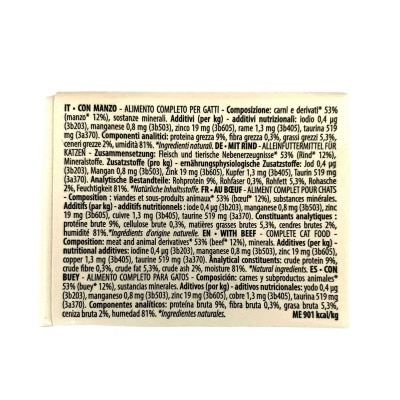 IT • CON MANZO - ALIMENTO COMPLETO PER GATTI - Composizione: carni e derivati* 53%
(manzo* 12%), sostanze minerali. Additivi (per kg) - additivi nutrizionali: iodio 0,4 µg
(3b203), manganese 0,8 mg (3b503), zinco 19 mg (3b605), rame 1,3 mg (3b405), taurina 519
mg (3a370). Componenti analitici: proteina grezza 9%, fibra grezza 0,3%, grassi grezzi 5,3%,
ceneri grezze 2%, umidità 81%. *Ingredienti naturali. DE - MIT RIND - ALLEINFUTTERMITTEL FÜR
KATZEN - Zusammensetzung: Fleisch und tierische Nebenerzeugnisse* 53% (Rind* 12%),
Mineralstoffe. Zusatzstoffe (pro kg) - ernährungsphysiologische Zusatzstoffe: Jod 0,4 µg
(3b203), Mangan 0,8 mg (3b503), Zink 19 mg (3b605), Kupfer 1,3 mg (3b405), Taurin 519 mg
(3a370). Analytische Bestandteile: Rohprotein 9%, Rohfaser 0,3%, Rohfett 5,3%, Rohasche
2%, Feuchtigkeit 81%. *Natürliche Inhaltsstoffe. FR - AU BŒUF - ALIMENT COMPLET POUR CHATS
- Composition : viandes et sous-produits animaux* 53% (bœuf* 12%), substances minérales.
Additifs (par kg) - additifs nutritionnels : iode 0,4 µg (3b203), manganèse 0,8 mg (3b503), zinc
19 mg (3b605), cuivre 1,3 mg (3b405), taurine 519 mg (3a370). Constituants analytiques :
protéine brute 9%, cellulose brute 0,3%, matières grasses brutes 5,3%, cendres brutes 2%,
humidité 81%. *Ingrédients d'origine naturelle. EN - WITH BEEF - COMPLETE CAT FOOD -
Composition: meat and animal derivatives* 53% (beef* 12%), minerals. Additives (per kg) -
nutritional additives: iodine 0.4 µg (3b203), manganese 0.8 mg (3b503), zinc 19 mg (3b605),
copper 1,3 mg (3b405), taurine 519 mg (3a370). Analytical constituents: crude protein 9%,
crude fibre 0,3%, crude fat 5,3%, crude ash 2%, moisture 81%. *Natural ingredients. ES - CON
BUEY - ALIMENTO COMPLETO PARA GATOS - Composición: carnes y subproductos animales*
53% (buey* 12%), sustancias minerales. Aditivos (por kg) - aditivos nutricionales: yodo 0,4 µg
(3b203), manganeso 0,8 mg (3b503), zinc 19 mg (3b605), cobre 1,3 mg (3b405), taurina 519 mg
(3a370). Componentes analíticos: proteína bruta 9%, fibra bruta 0,3%, grasa bruta 5,3%,
ceniza bruta 2%, humedad 81%. *Ingredientes naturales.
ME 901 kcal/kg